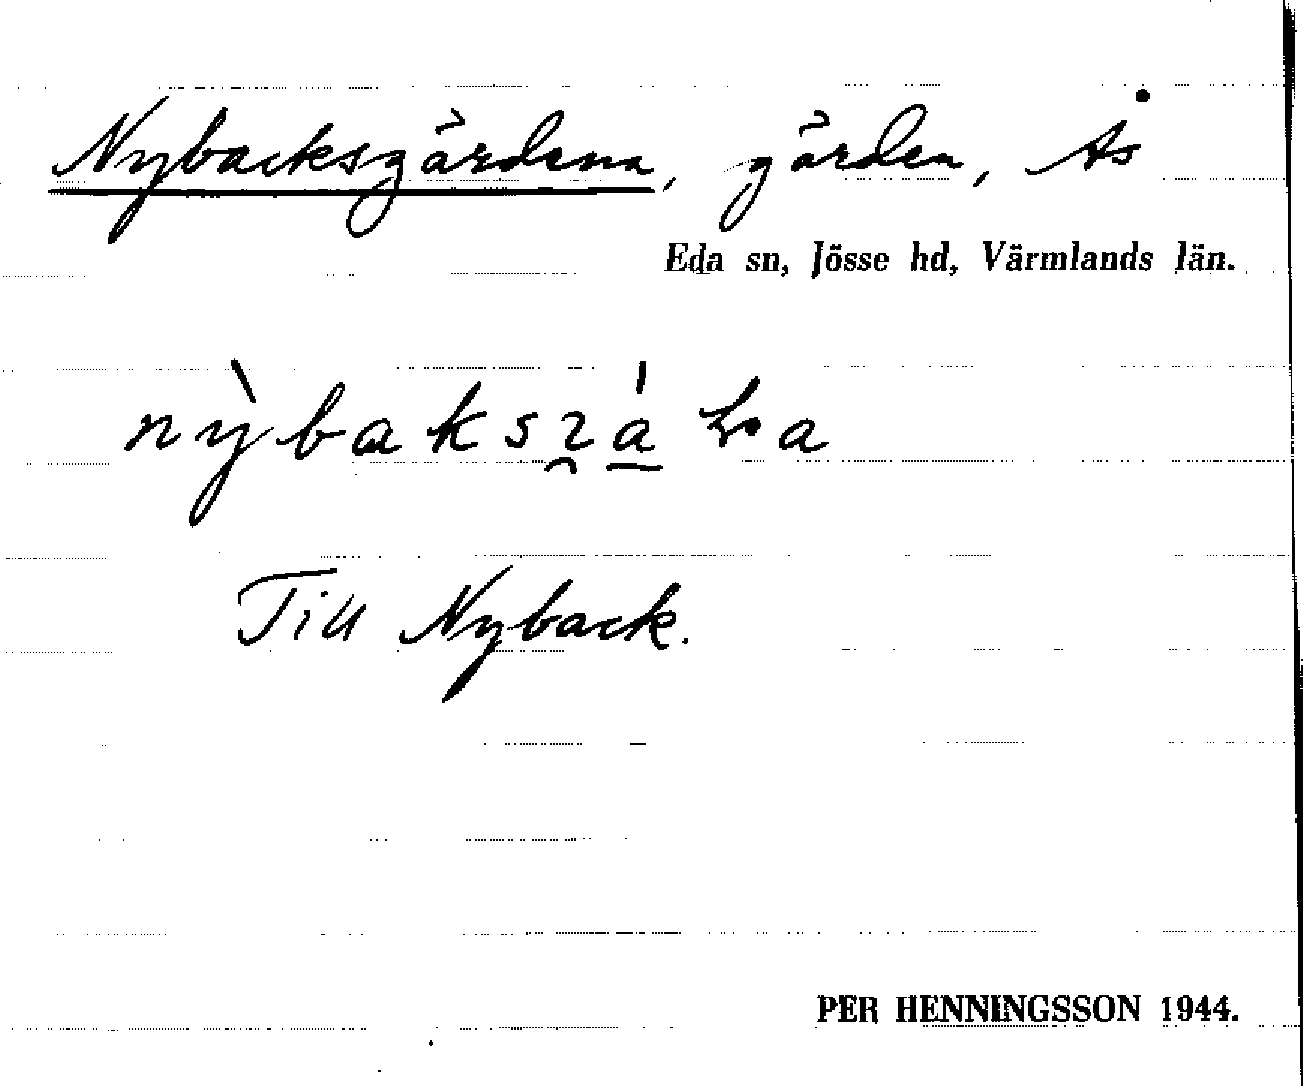 Nybacksgärdena, gärden, Ås
Eda sn, Jösse hd, Värmlands län.
Till Nyback.
PER HENNINGSSON 1944.